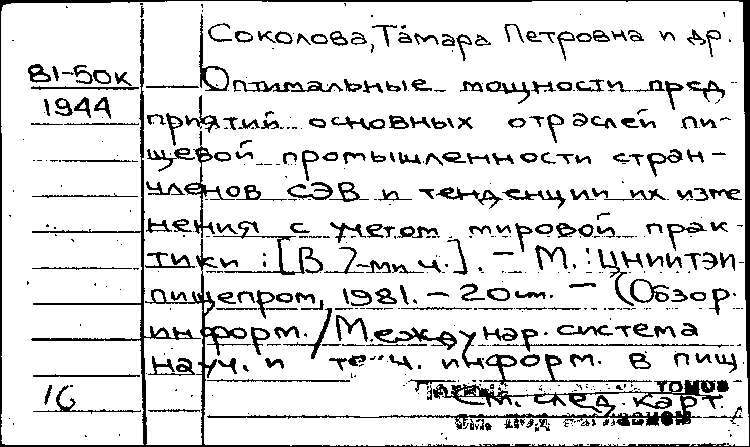 Соколова, Тамара Петровна и др.
81-50к
Оптимальные мощности пред
1944
приятий основных отраслей пи-
щевой промышленности стран-
членов СЭВ и тенденции их изме
нения с учетом мировой прак
тики : [В 7-ми ч.]. – М. : ЦНИИТЭИ
пищепром, 1981. – 20 см. – (Обзор.
информ. / Междунар. система
науч. и техн. информ. в пищ
томов
16
См. след. карт
см. под